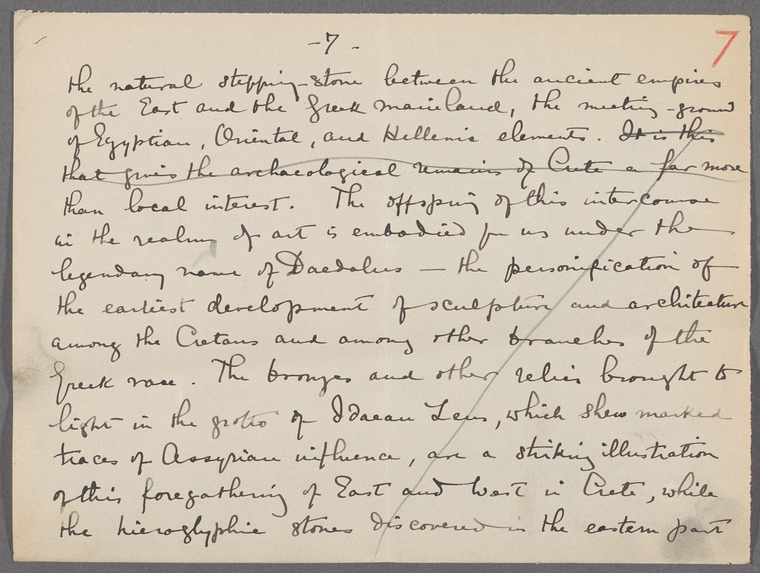 -7-
7
the natural stepping-stone between the ancient empires
of the East and the Greek mainland, the meeting-ground
of Egyptian, Oriental, and Hellenic elements. It is this
that gives the archaeological remains of Crete a far more
than local interest. The offspring of this intercourse
in the realm of art is embodied for us under the
legendary name of Daedalus — the personification of
the earliest development of sculpture and architecture
among the Cretans and among other branches of the
Greek race. The bronzes and other relics brought to
light in the grotto of Idaean Zeus, which shew marked
traces of Assyrian influence, are a striking illustration
of this foregathering of East and West in Crete, while
the hieroglyphic stones discovered in the eastern part